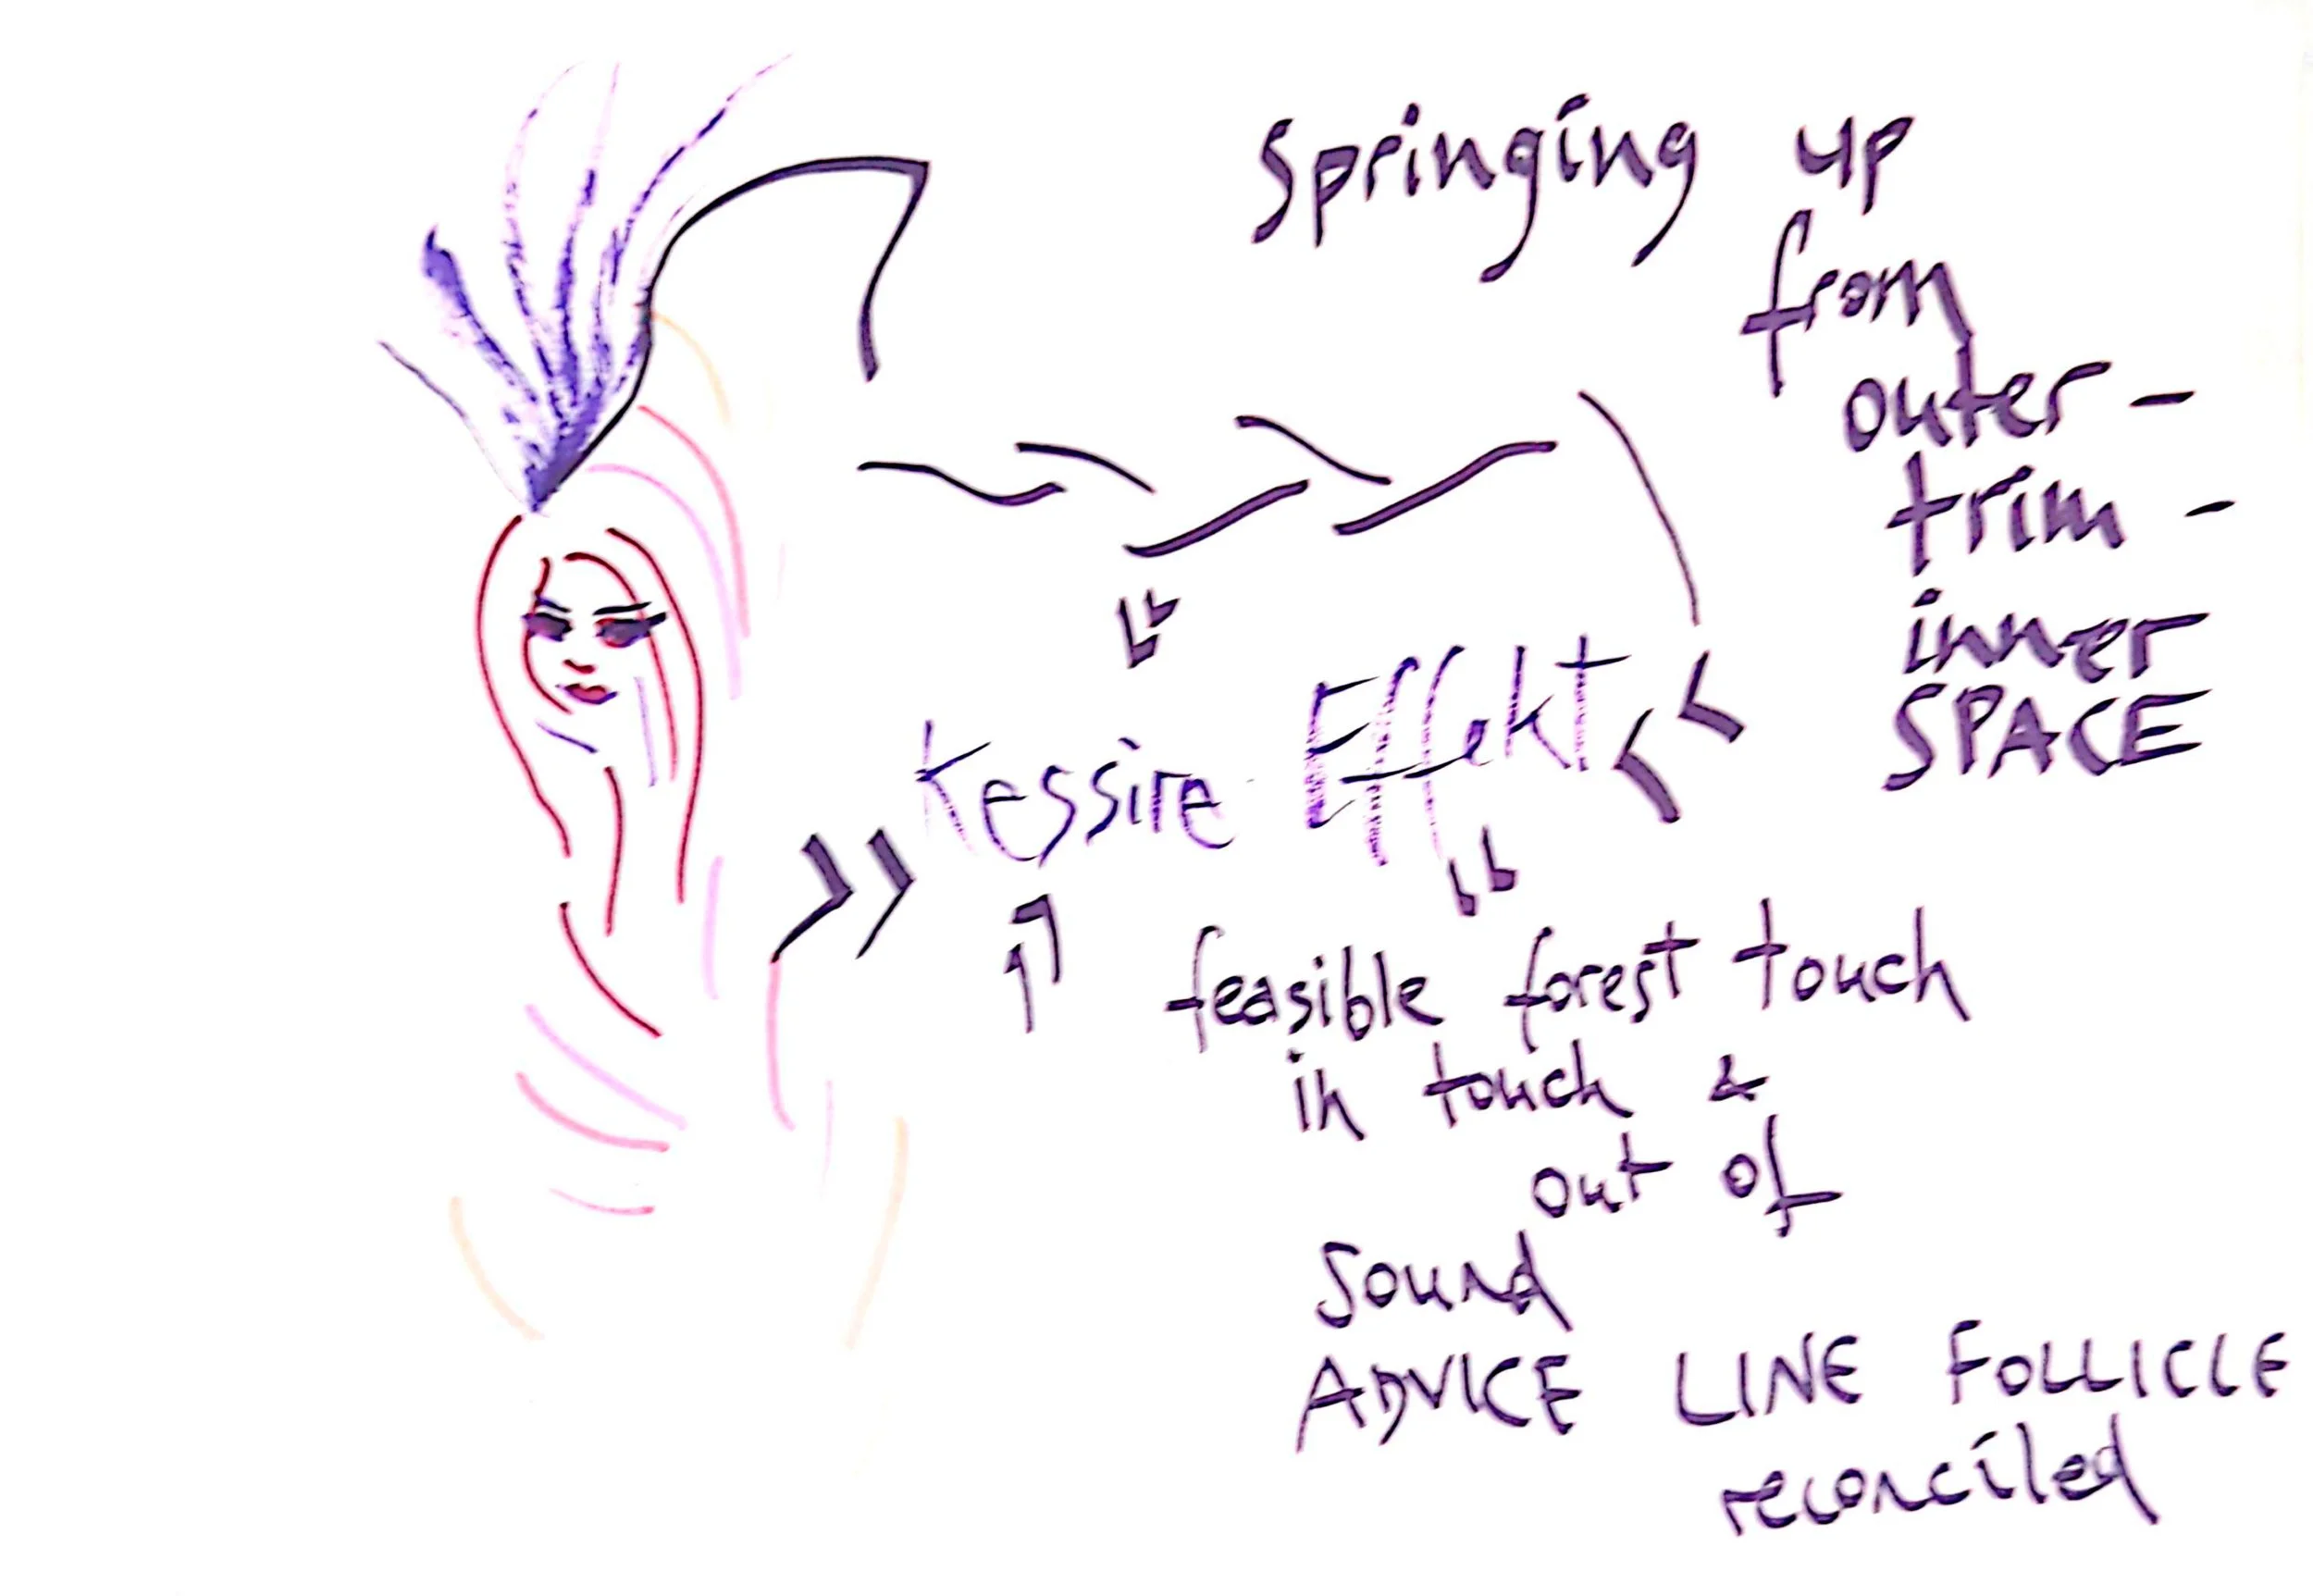 Springing up
from
outer -
trim -
inner
SPACE
Kessire Effekt
feasible forest touch
in touch &
out of
Sound
ADVICE LINE FOLLICLE
reconciled